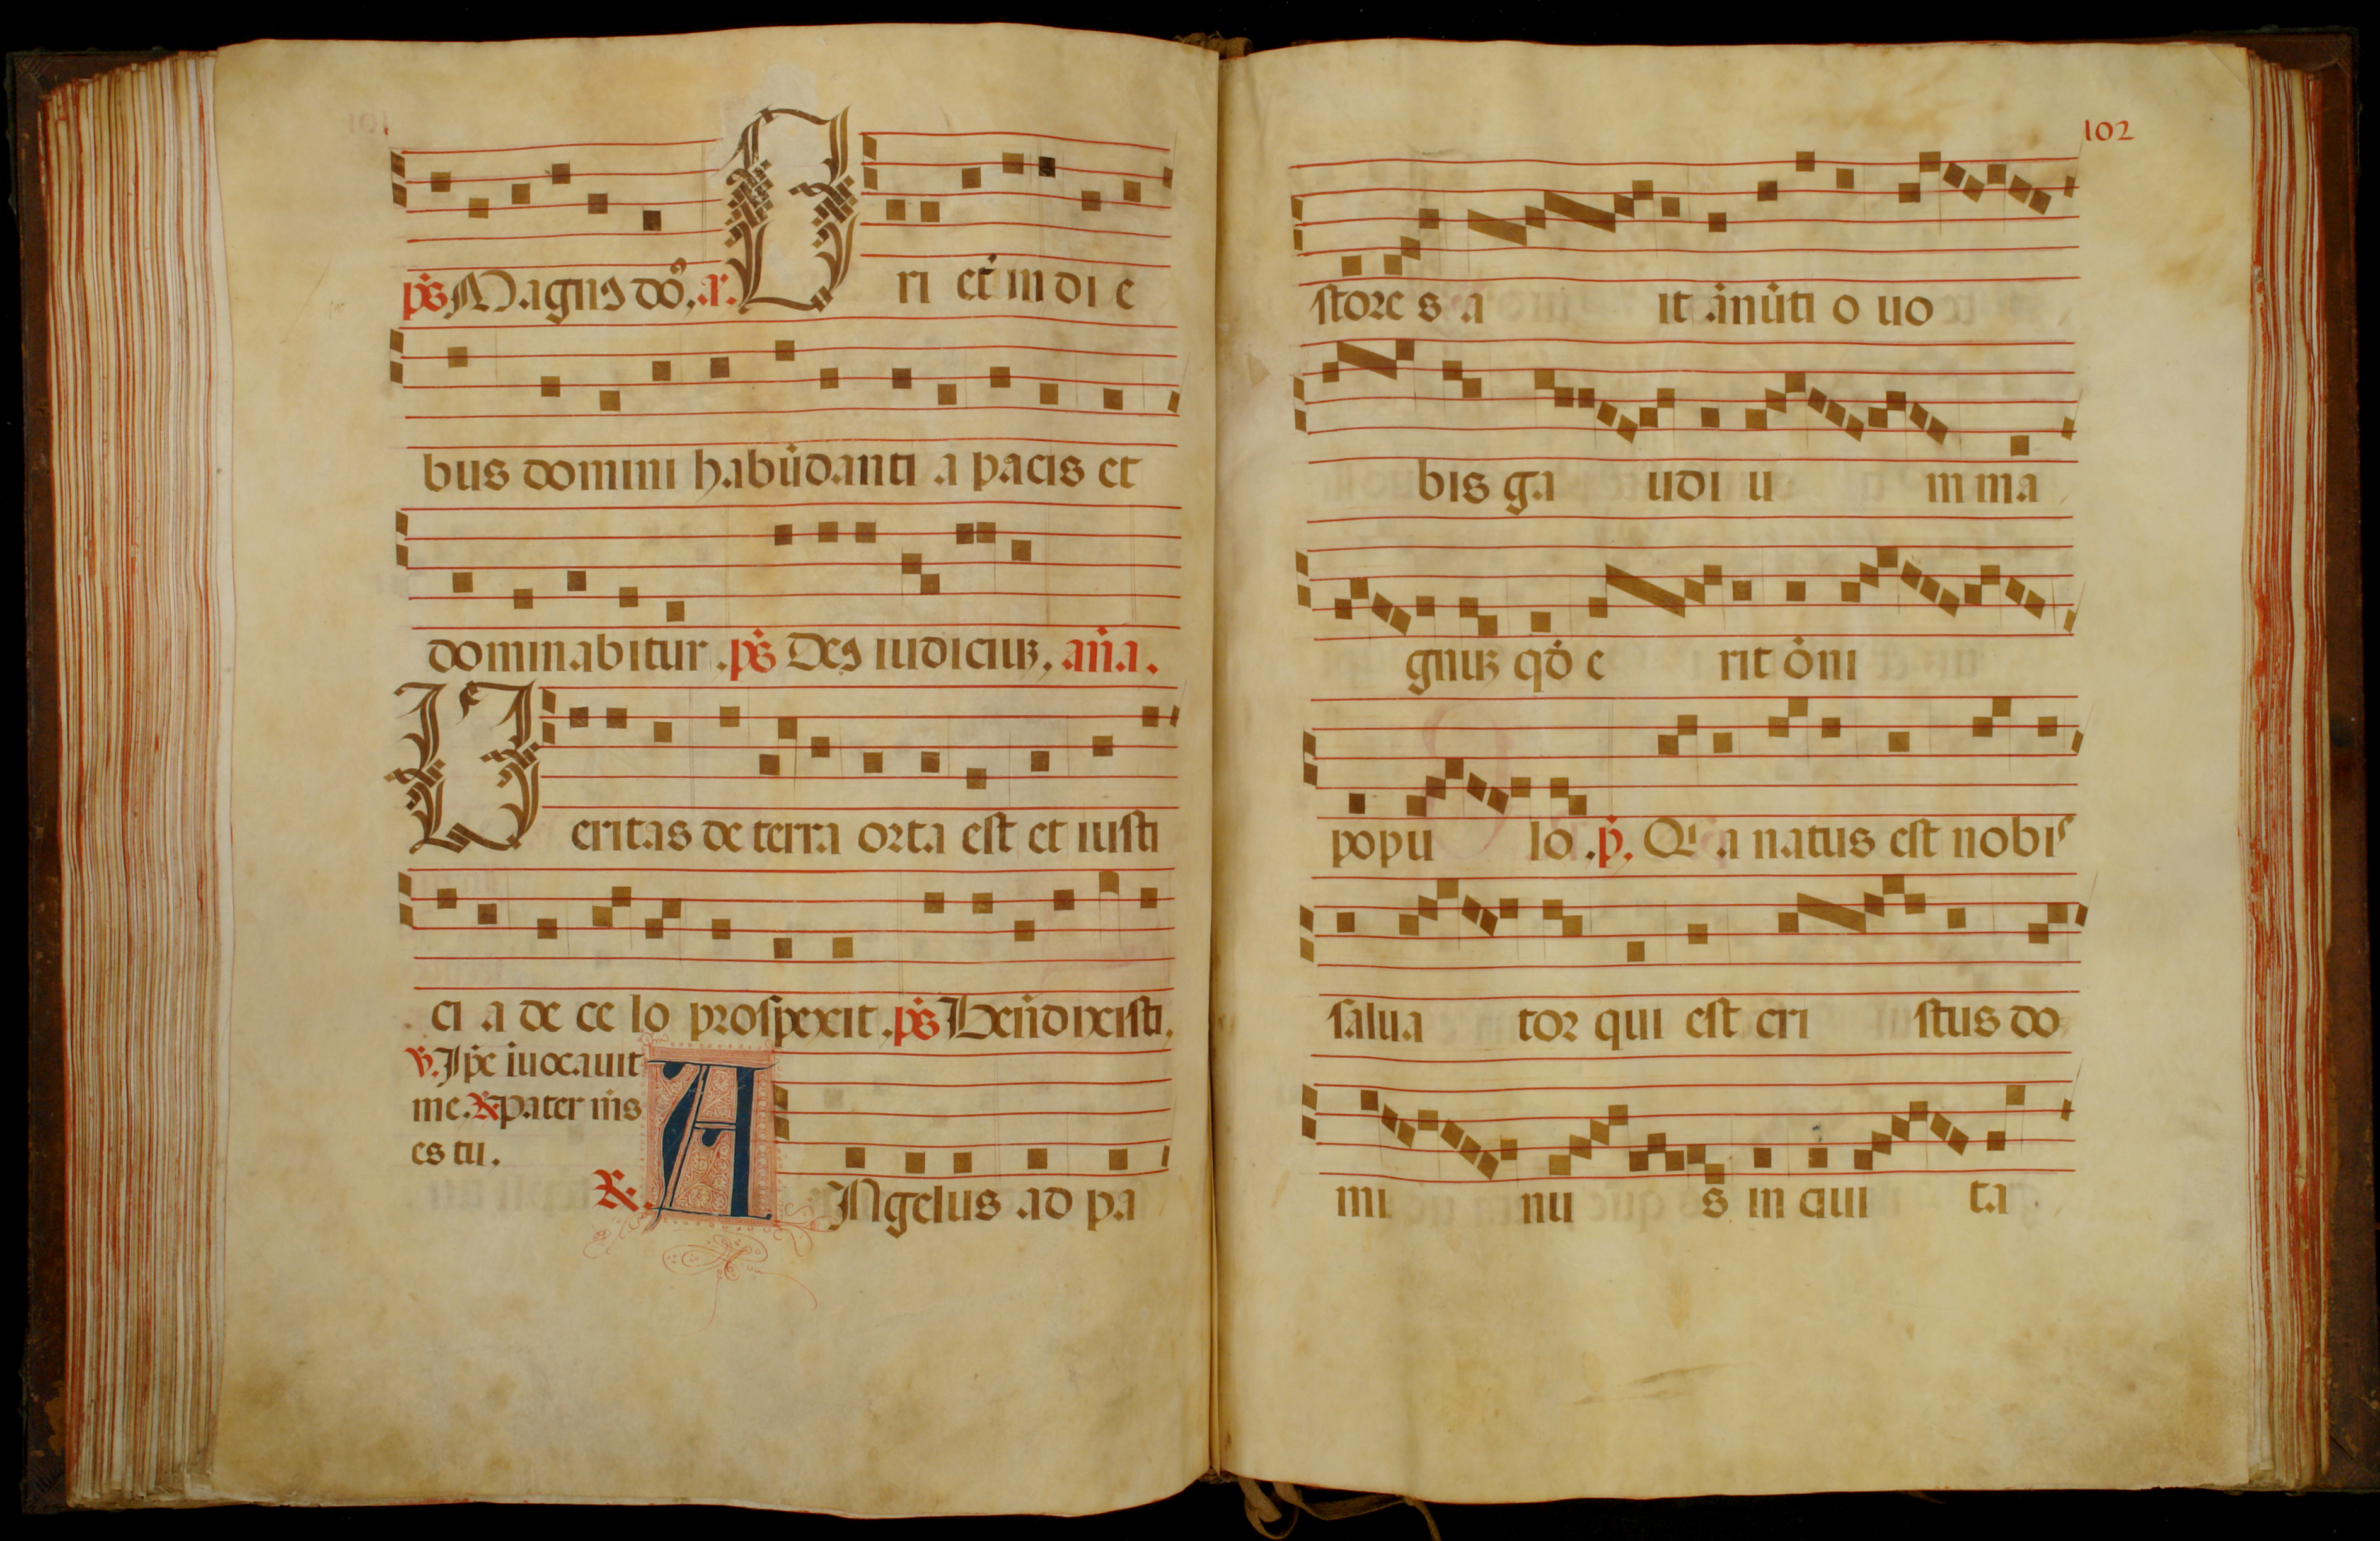 p̃s Magnꝯ dõ. a. O ri et̃ in di e
bus domini habũdanti a pacis et
dominabitur . p̃s Deꝯ iudiciuꝫ. añ.a.
U eritas de terra orta est et iusti
ci a de ce lo prospexit . p̃s Beñdixisti.
℣. Ip̃e ĩuocauit
me. ℟ pater m̃s
es tu.
℟. A Ngelus ad pa
102
store s a it ãnũti o uo
bis ga udi u m ma
gnuꝫ qð e rit õni
popu lo . p̃. Qi a natus est nobis
salua tor qui est cri stus do
mi nu s in ciui ta